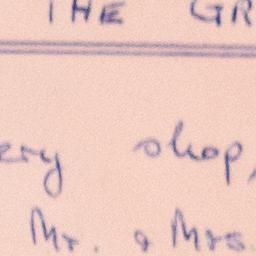 THE GR
ery shop,
Mr. & Mrs.